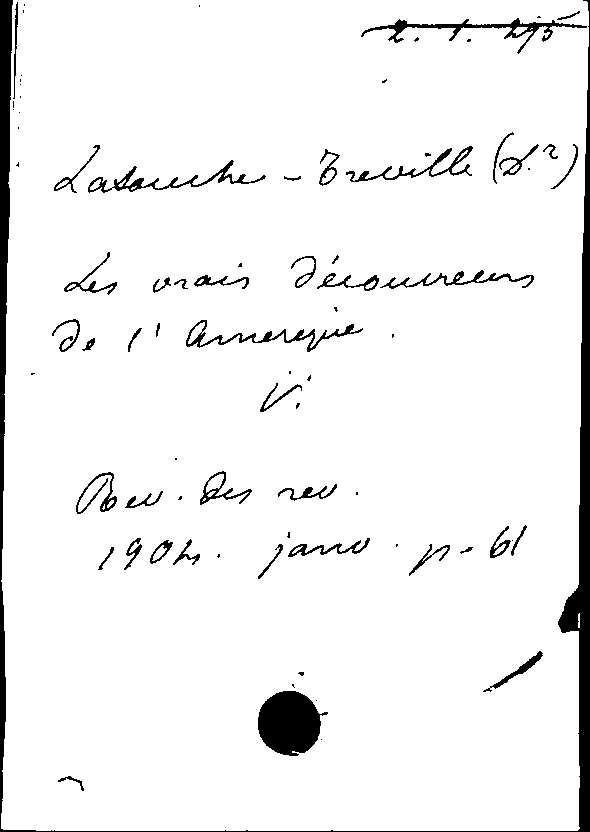 2. 1. 295
Latouche - Treville (D.r)
Les vrais découvreurs
de l'Amerique.
V.
Rev. des rev.
1904. janv. p. 61